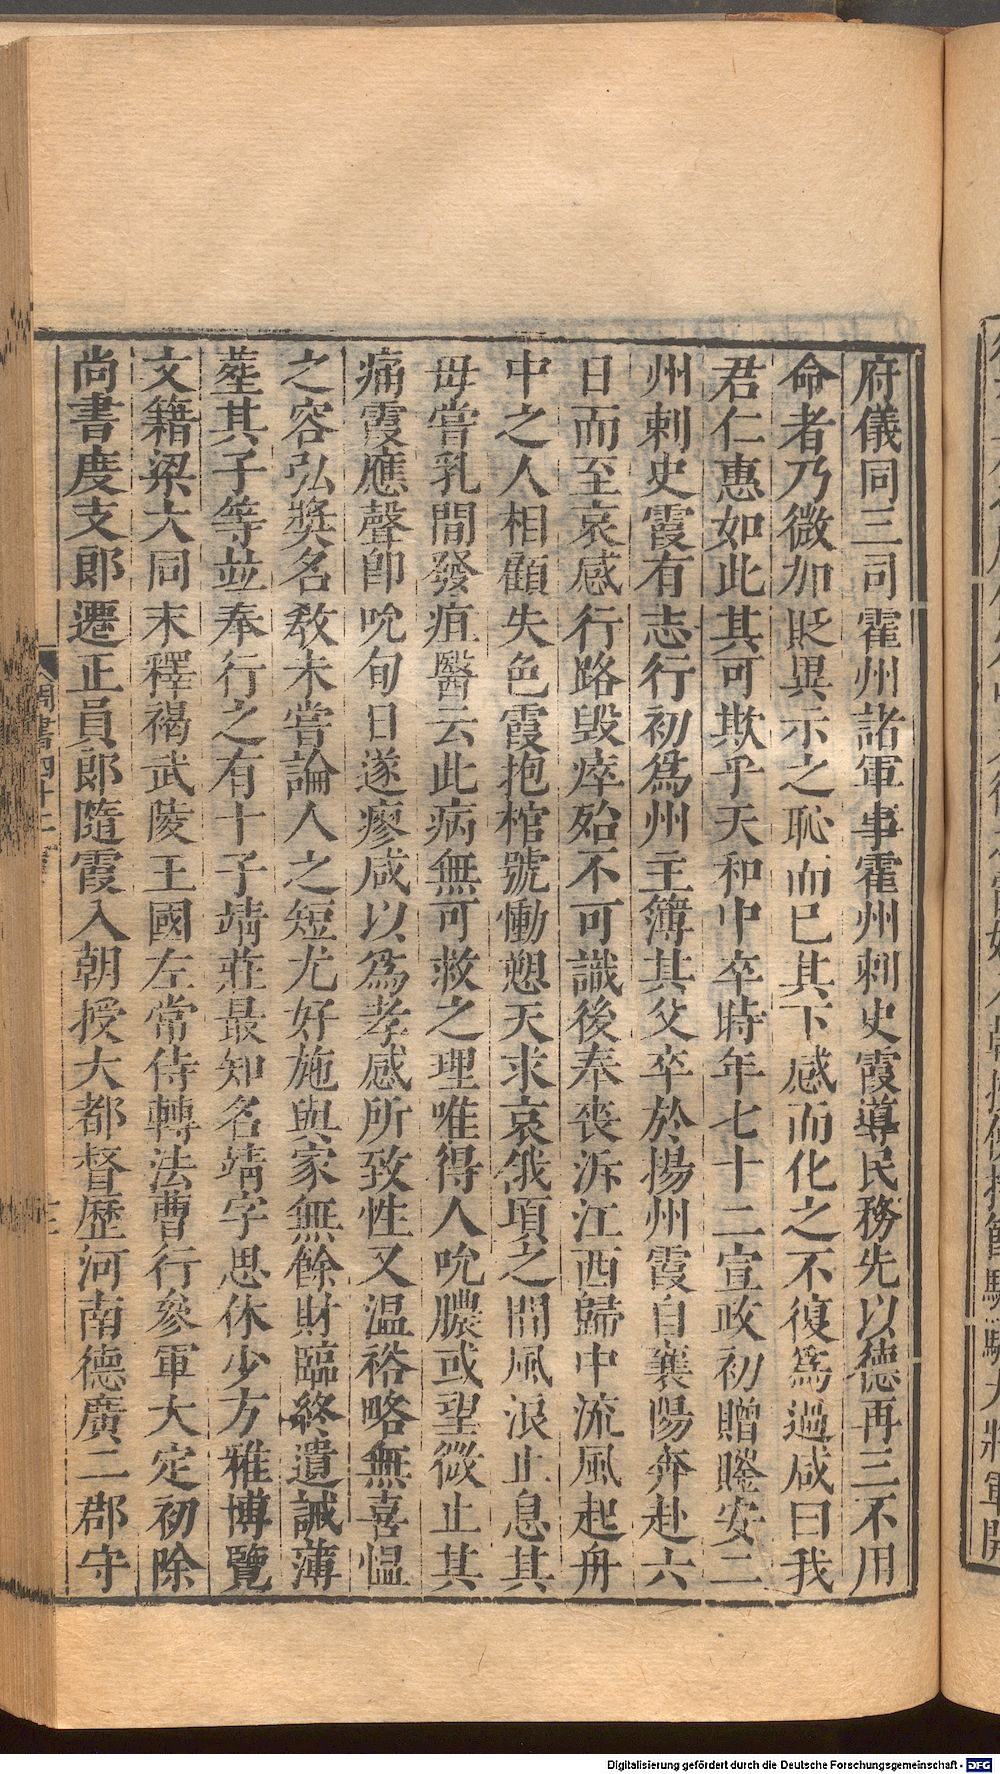 府儀同三司霍州諸軍事霍州刺史霞導民務先以德再三不用
命者乃微加貶異示之恥而已其下感而化之不復爲過咸曰我
君仁惠如此其可欺乎天和中卒時年七十二宣政初贈
安二
州刺史霞有志行初爲州主簿其父卒於揚州霞自襄陽奔赴六
日而至哀感行路毀瘁殆不可識後奉喪泝江西歸中流風起舟
中之人相顧失色霞抱棺號慟愬天求哀俄頃之間風浪止息其
母嘗乳間發疽醫云此病無可救之理唯得人吮膿或望微止其
痛霞應聲卽吮旬日遂瘳咸以爲孝感所致性又温裕略無喜愠
之容弘奬名敎未嘗論人之短尤好施與家無餘財臨終遺誡薄
葬其子等並奉行之有十子靖莊最知名靖字思休少方雅博覽
文籍梁大同末釋褐武陵王國左常侍轉法曹行參軍大定初除
尚書度支郎遷正員郎隨霞入朝授大都督歷河南德廣二郡守
周書四十二
Digitalisierung gefördert durch die Deutsche Forschungsgemeinschaft - DFG